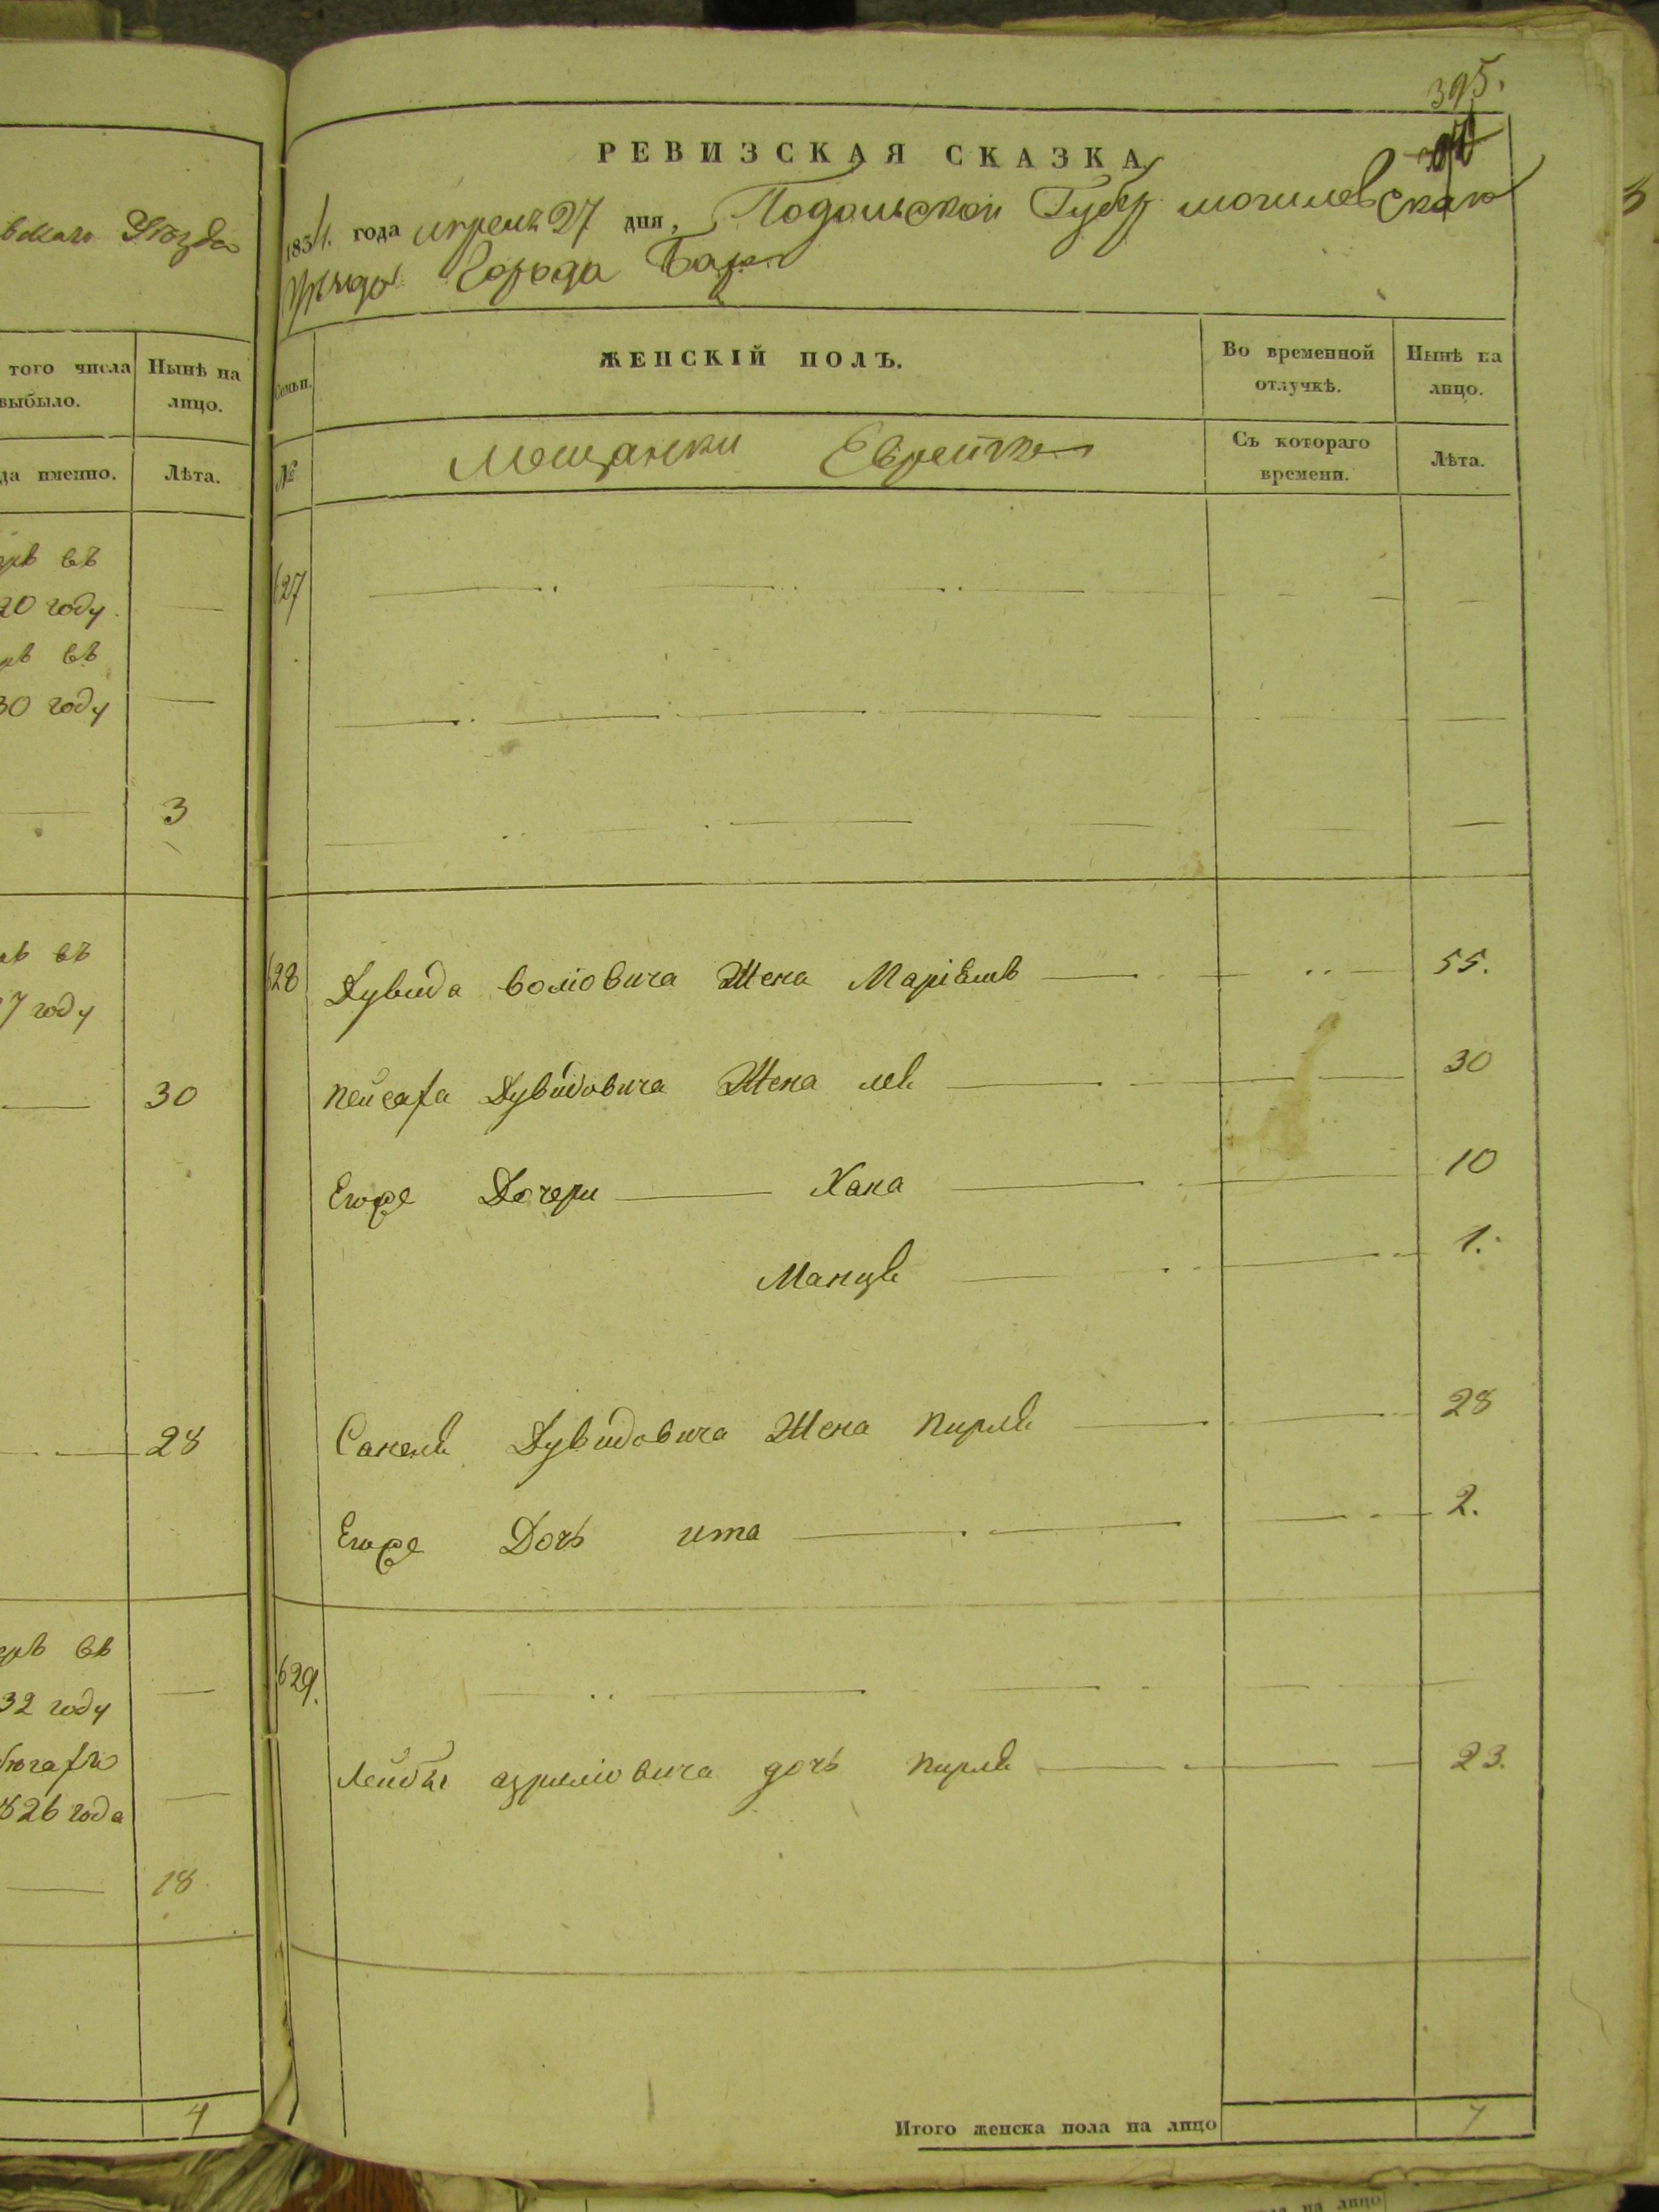 вскаго Уѣзда
того числа
выбыло.
Нынѣ на
лицо.
да именно.
Лѣта.
въ
20 году
въ
30 году
3
въ
7 году
30
28
въ
32 году
826 года
18
4
395.
РЕВИЗСКАЯ СКАЗКА
1834. года апреля 27 дня, Подольской Губер могилевскаго
уѣзда Города Бара
Семьи.
ЖЕНСКІЙ ПОЛЪ.
Во временной
отлучкѣ.
Нынѣ на
лицо.
№
Мещанки Еврейки
Съ котораго
времени.
Лѣта.
627
628 Дувида волiовича Жена Марiемъ 55.
пейсаха Дувидовича Жена лея 30
Егоже Дочери Хана 10
Манця 1.
Дувидовича Жена пирля 28
Егоже Дочь ита 2.
629.
Лейбы азрилiовича дочь пирля 23.
Итого женска пола на лицо 7
на лицо